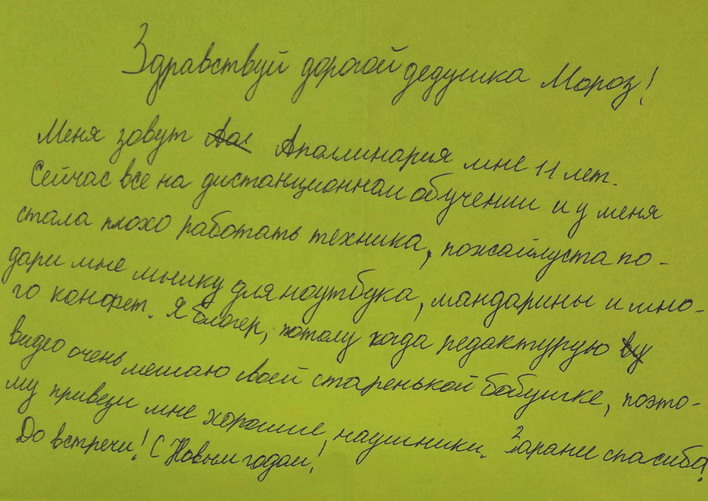 Здравствуй дорогой дедушка Мороз!
Меня зовут Аполлинария мне 11 лет.
Сейчас все на дистанционном обучении и у меня
стала плохо работать техника, пожайлуста по-
дари мне мышку для ноутбука, мандарины и мно-
го конфет. Я блогер, потому когда редактурую
видео очень мешаю своей старенькой бабушке, поэто-
му привези мне хорошие наушники. Зарание спасиба!
До встречи! С Новым годом!